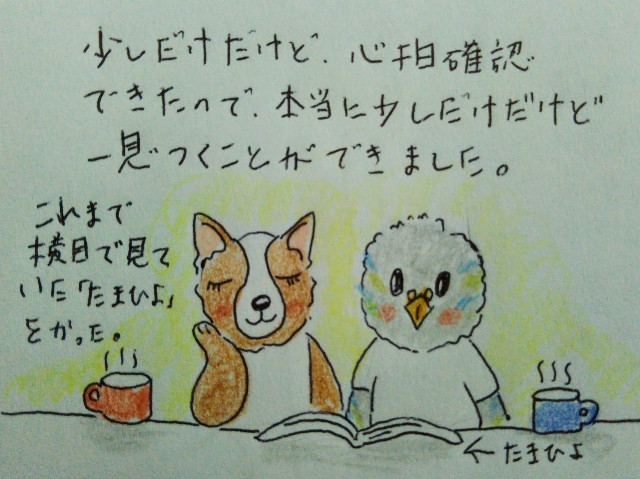 少しだけだけど、心拍確認
できたので、本当に少しだけだけど
一息つくことができました。
これまで
横目で見て
いた「たまひよ」
をかった。
←たまひよ